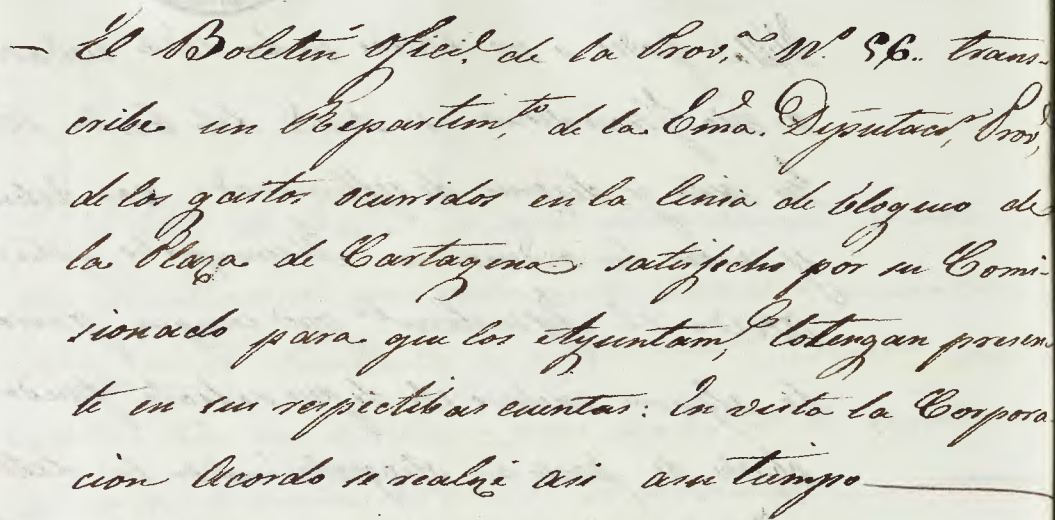 – El Boletin Ofici.l de la Prov.a N.o 56. trans-
cribe un Repartim.to de la Ema. Diputac.n Prov.l
de los gastos ocurridos en la linia de bloqueo de
la Plaza de Cartagena satisfecho por su Comi-
sionado para que los Ayuntam.s lo tengan presen
te en sus respectibas cuentas: En vista la Corpora
cion Acordo se realize asi asu tiempo